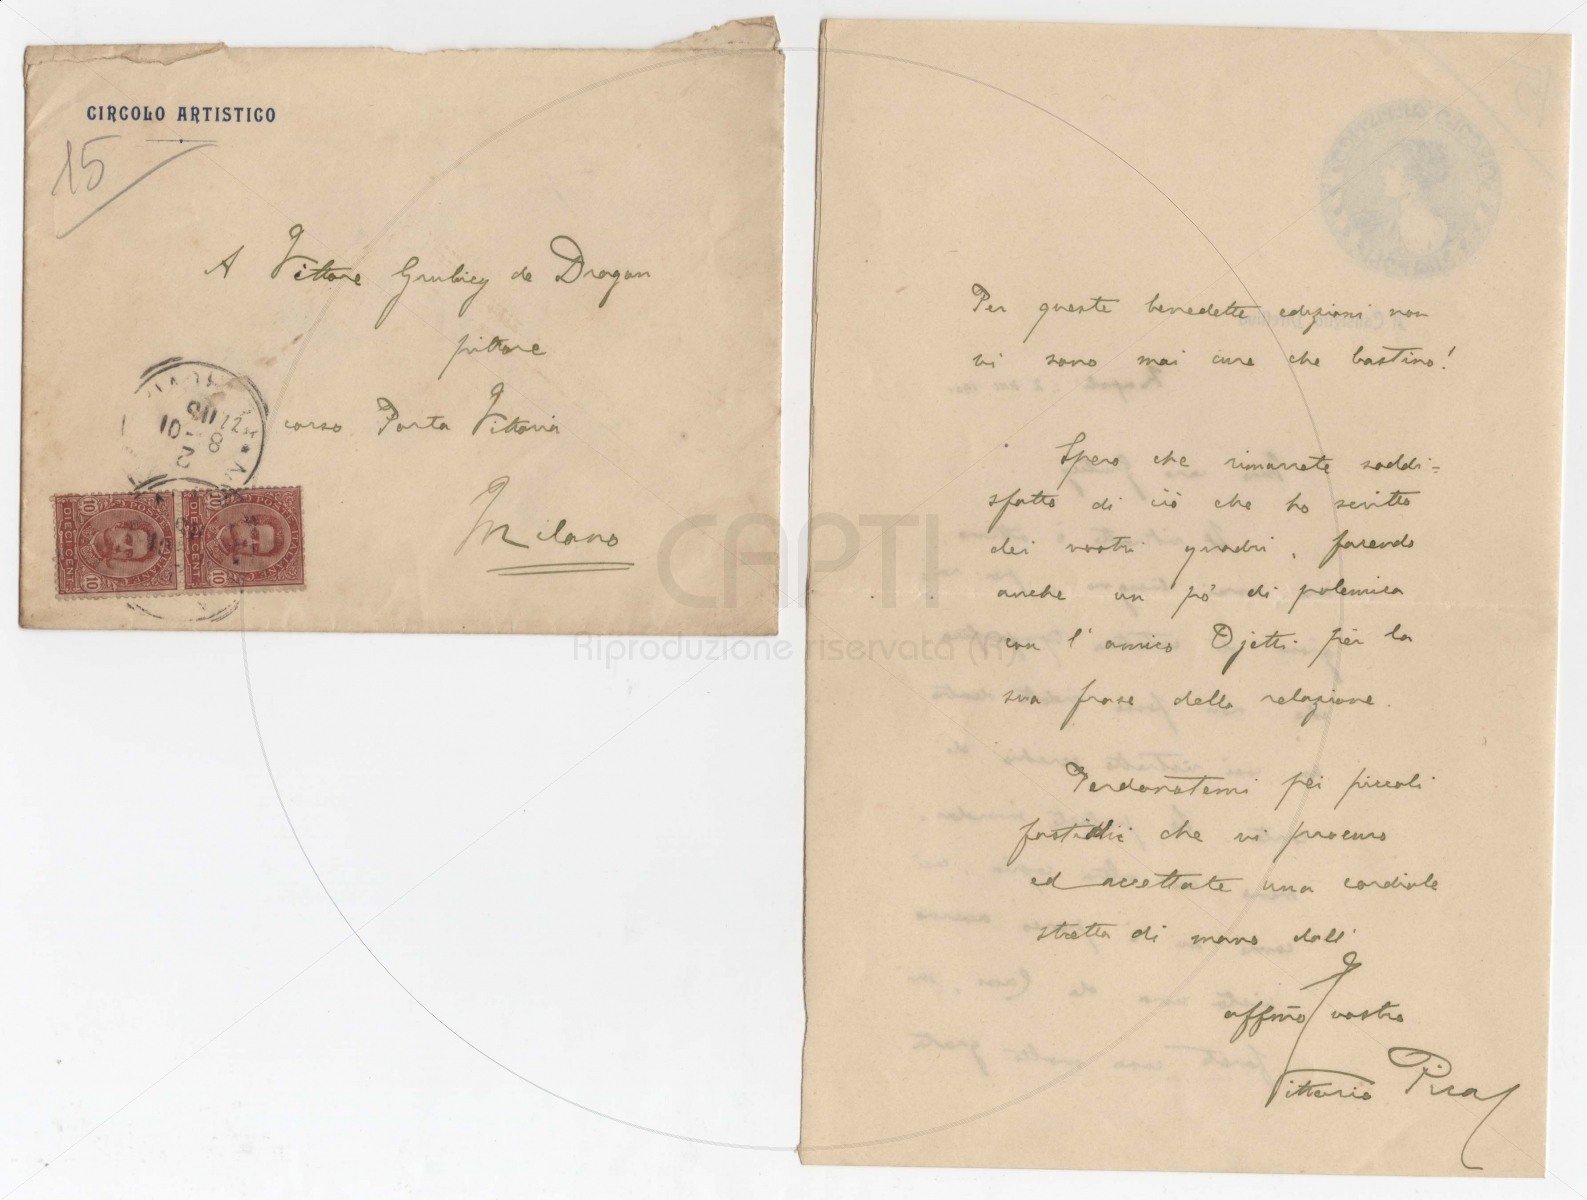 CIRCOLO ARTISTICO
15
A Vittore Grubicy de Dragon
pittore
corso Porta Vittoria
Milano
10 POSTE ITALIANE 10
DIECI CENT.
10 POSTE ITALIANE 10
DIECI CENT.
Per queste benedette edizioni non
vi sono mai cure che bastino!
Spero che rimarrete soddi=
sfatto di ciò che ho scritto
dei vostri quadri, facendo
anche un pò di polemica
con l'amico Ojetti per la
sua frase della relazione.
Perdonatemi pei piccoli
fastidii che vi procuro
ed accettate una cordiale
stretta di mano dall'
affmo vostro
Vittorio Pica
CAPTI
Riproduzione riservata (R)